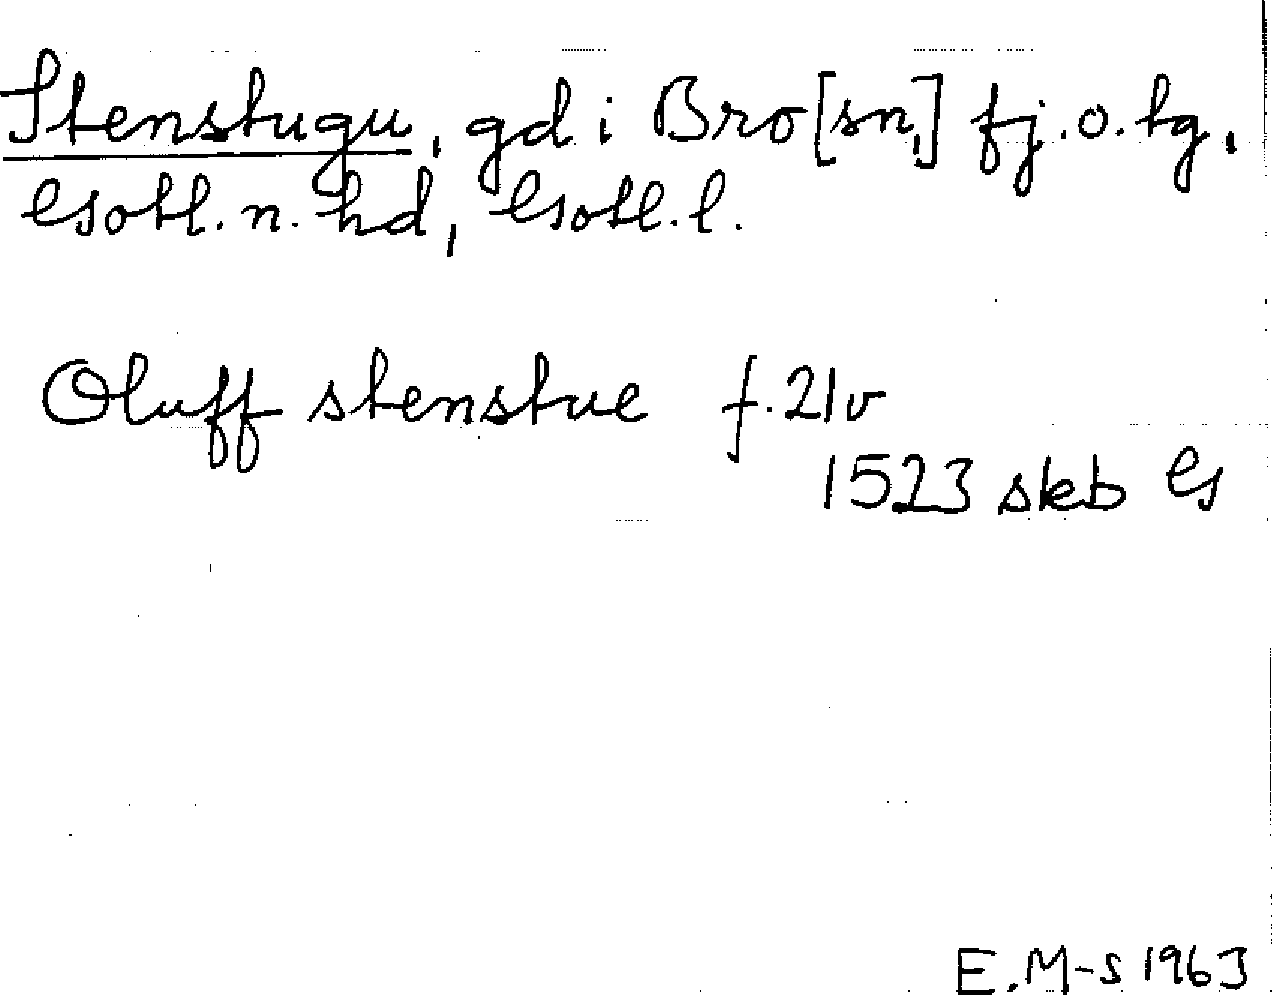 Stenstugu, gd i Bro [sn,] fj. o. tg,
Gotl. n. hd, Gotl. l.
Oluff stenstue f. 21v
1523 skb G
E.M-S 1963